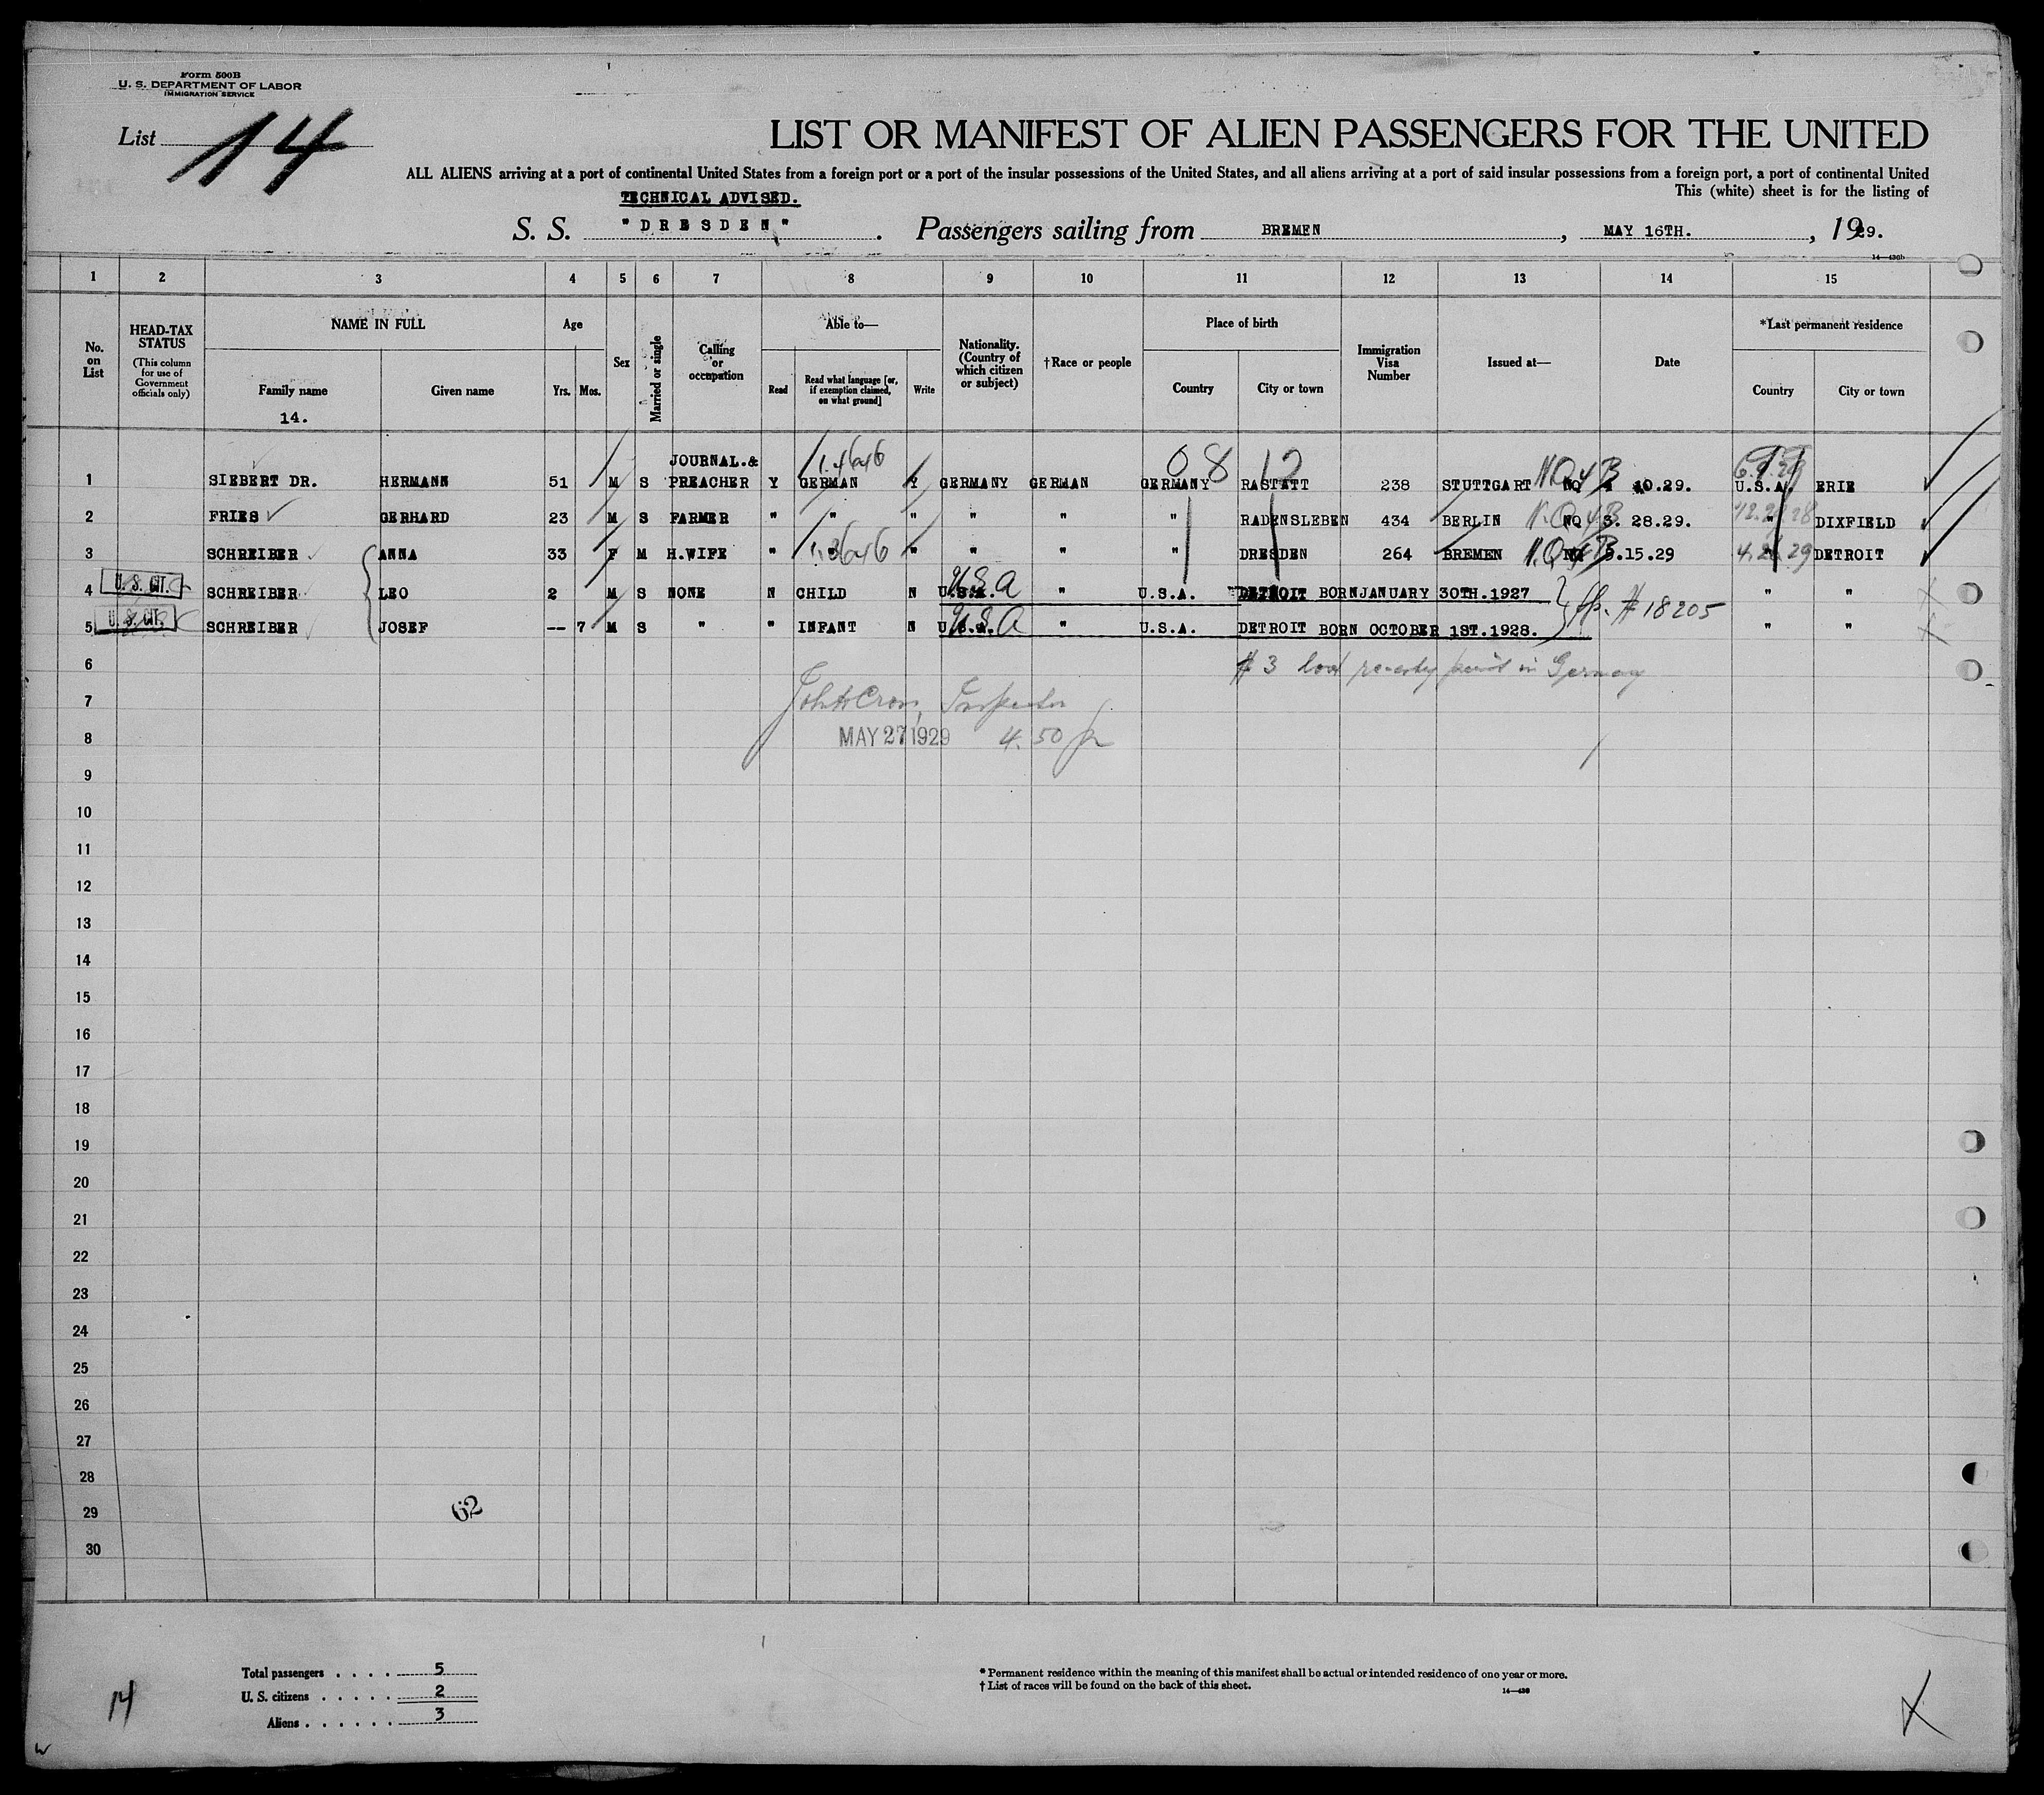 Form 500B
U. S. DEPARTMENT OF LABOR
IMMIGRATION SERVICE
List 14
LIST OR MANIFEST OF ALIEN PASSENGERS FOR THE UNITED
ALL ALIENS arriving at a port of continental United States from a foreign port or a port of the insular possessions of the United States, and all aliens arriving at a port of said insular possessions from a foreign port, a port of continental United
This (white) sheet is for the listing of
TECHNICAL ADVISED.
S. S. "DRESDEN". Passengers sailing from BREMEN, MAY 16TH., 1929.
1 2 3 4 5 6 7 8 9 10 11 12 13 14 15
No. on List
HEAD-TAX STATUS (This column for use of Government officials only)
NAME IN FULL
Family name
Given name
14.
Age
Yrs. Mos.
Sex
Married or single
Calling or occupation
Able to—
Read
Read what language [or, if exemption claimed, on what ground]
Write
Nationality. (Country of which citizen or subject)
†Race or people
Place of birth
Country
City or town
Immigration Visa Number
Issued at—
Date
*Last permanent residence
Country
City or town
08 12
1 SIEBERT DR. HERMANN 51 M S JOURNAL.& PREACHER Y GERMAN Y GERMANY GERMAN GERMANY RASTATT 238 STUTTGART NQ 4 10.29. U.S.A. ERIE
2 FRIES GERHARD 23 M S FARMER " " " " " " RADENSLEBEN 434 BERLIN NQ 3. 28.29. " DIXFIELD
3 SCHREIBER ANNA 33 F M H.WIFE " " " " " " DRESDEN 264 BREMEN 3.15.29 " DETROIT
U. S. CIT.
4 SCHREIBER LEO 2 M S NONE N CHILD N U.S.A. " U.S.A. DETROIT BORN JANUARY 30TH.1927 " "
U. S. CIT.
5 SCHREIBER JOSEF -- 7 M S " " INFANT N U.S.A. " U.S.A. DETROIT BORN OCTOBER 1ST.1928. " "
# 18205
6 # 3 in Germany
7 Inspector
8 MAY 27 1929 4.50
9
10
11
12
13
14
15
16
17
18
19
20
21
22
23
24
25
26
27
28
29
62
30
Total passengers . . . . 5
U. S. citizens . . . . . 2
Aliens . . . . . . 3
* Permanent residence within the meaning of this manifest shall be actual or intended residence of one year or more.
† List of races will be found on the back of this sheet.
14